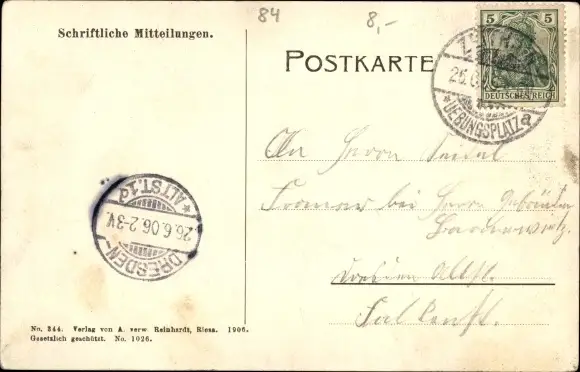 84
8,-
Schriftliche Mitteilungen.
POSTKARTE
5 5
DEUTSCHES REICH
*UEBUNGSPLATZ a
An Herrn
bei Herrn Gebrüder
Dresden Altst.
Falkenst.
DRESDEN-
26.6.06.2-3V.
*ALTST.1d
No. 344. Verlag von A. verw. Reinhardt, Riesa. 1906.
Gesetzlich geschützt. No. 1026.